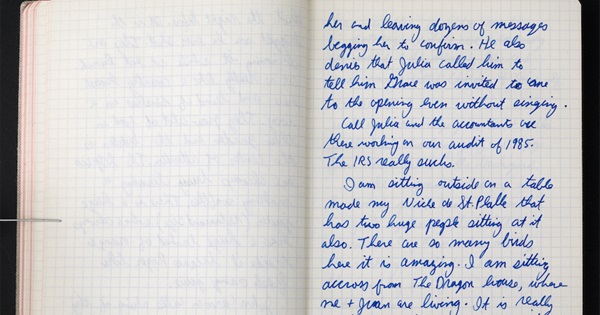 her and leaving dozens of messages
begging her to confirm. He also
denies that Julia called him to
tell him Grace was invited to come
to the opening even without singing.
Call Julia and the accountants are
there working on our audit of 1985.
The IRS really sucks.
I am sitting outside on a table
made my Nicle de St. Phalle that
has two huge people sitting at it
also. There are so many birds
here it is amazing. I am sitting
accross from The Dragon house, where
me + Juan are living. It is really